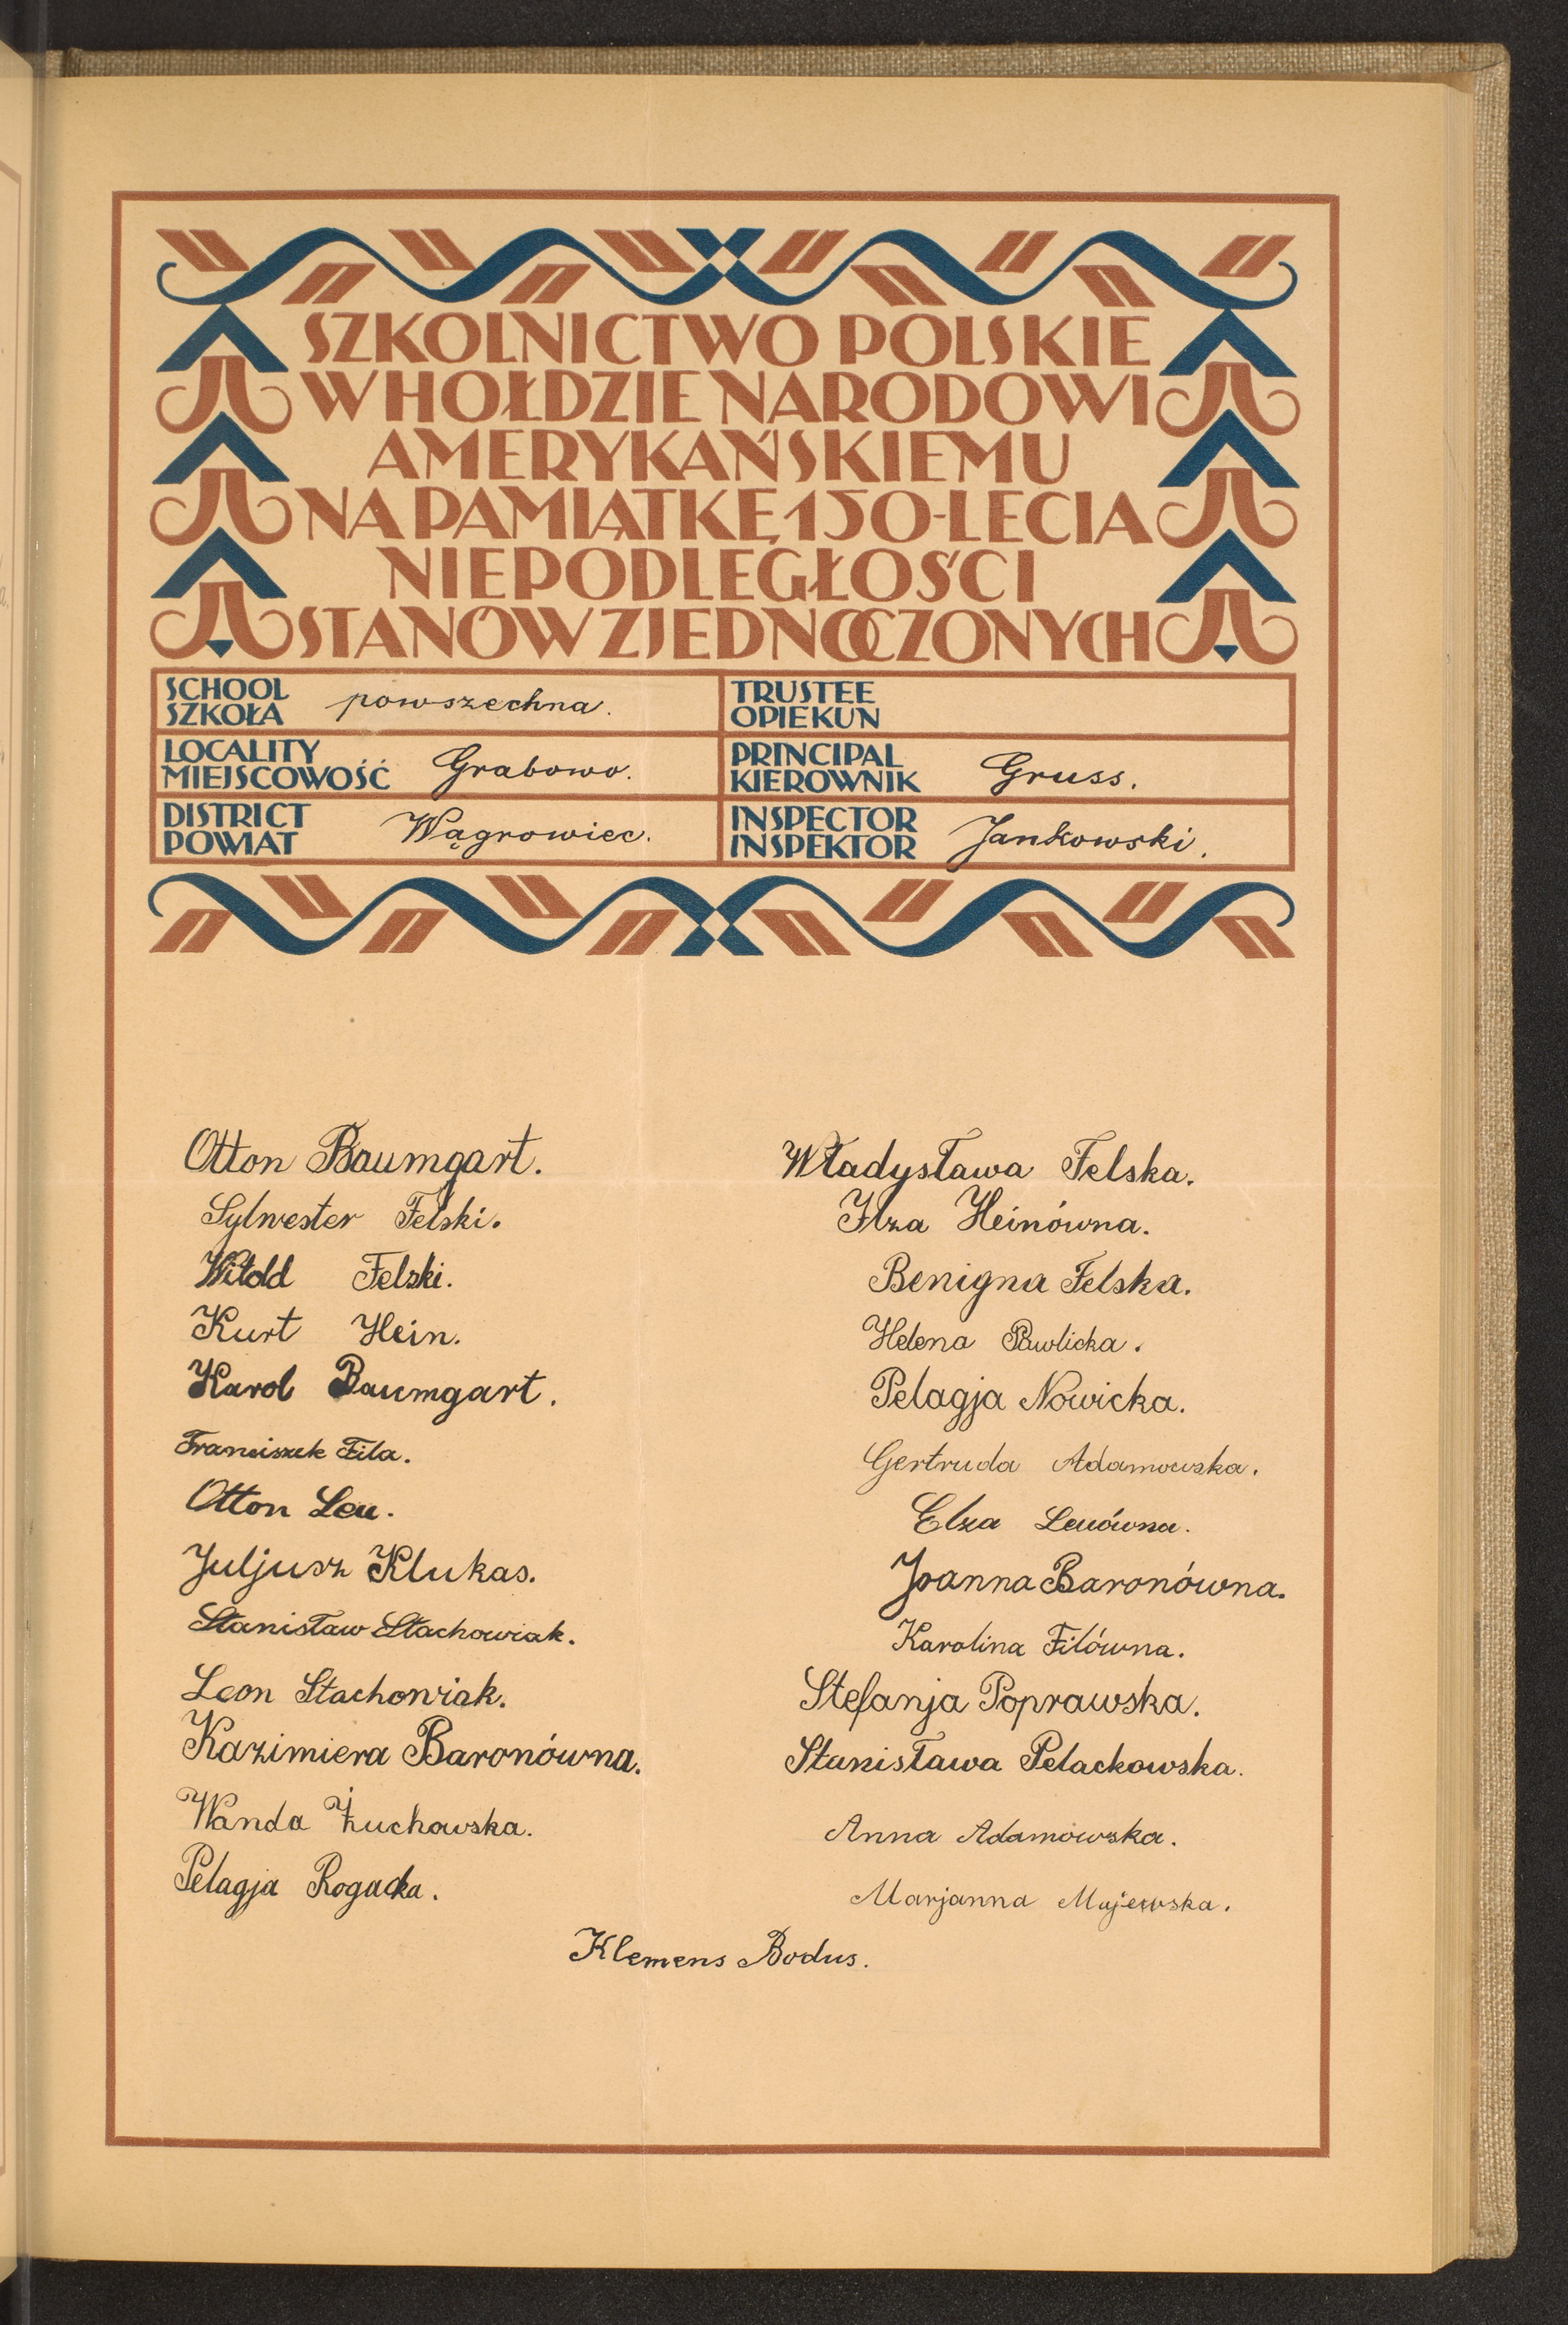 SZKOLNICTWO POLSKIE
W HOŁDZIE NARODOWI
AMERYKAŃSKIEMU
NA PAMIĄTKĘ 150-LECIA
NIEPODLEGŁOŚCI
STANÓW ZJEDNOCZONYCH
SCHOOL
SZKOŁA powszechna.
TRUSTEE
OPIEKUN
LOCALITY
MIEJSCOWOŚĆ Grabowo.
PRINCIPAL
KIEROWNIK Gruss.
DISTRICT
POWIAT Wągrowiec.
INSPECTOR
INSPEKTOR Jankowski.
Otton Baumgart.
Sylwester Felski.
Witold Felski.
Kurt Hein.
Karol Baumgart.
Franciszek Fila.
Otton Leu.
Juljusz Klukas.
Stanisław Stachowiak.
Leon Stachowiak.
Kazimiera Baronówna.
Wanda Żuchowska.
Pelagja Rogacka.
Władysława Felska.
Ilza Heinówna.
Benigna Felska.
Helena Pawlicka.
Pelagja Nowicka.
Gertruda Adamowska.
Elza Leuówna.
Joanna Baronówna.
Karolina Filówna.
Stefanja Poprawska.
Stanisława Pelackowska.
Anna Adamowska.
Marjanna Majewska.
Klemens Bodus.